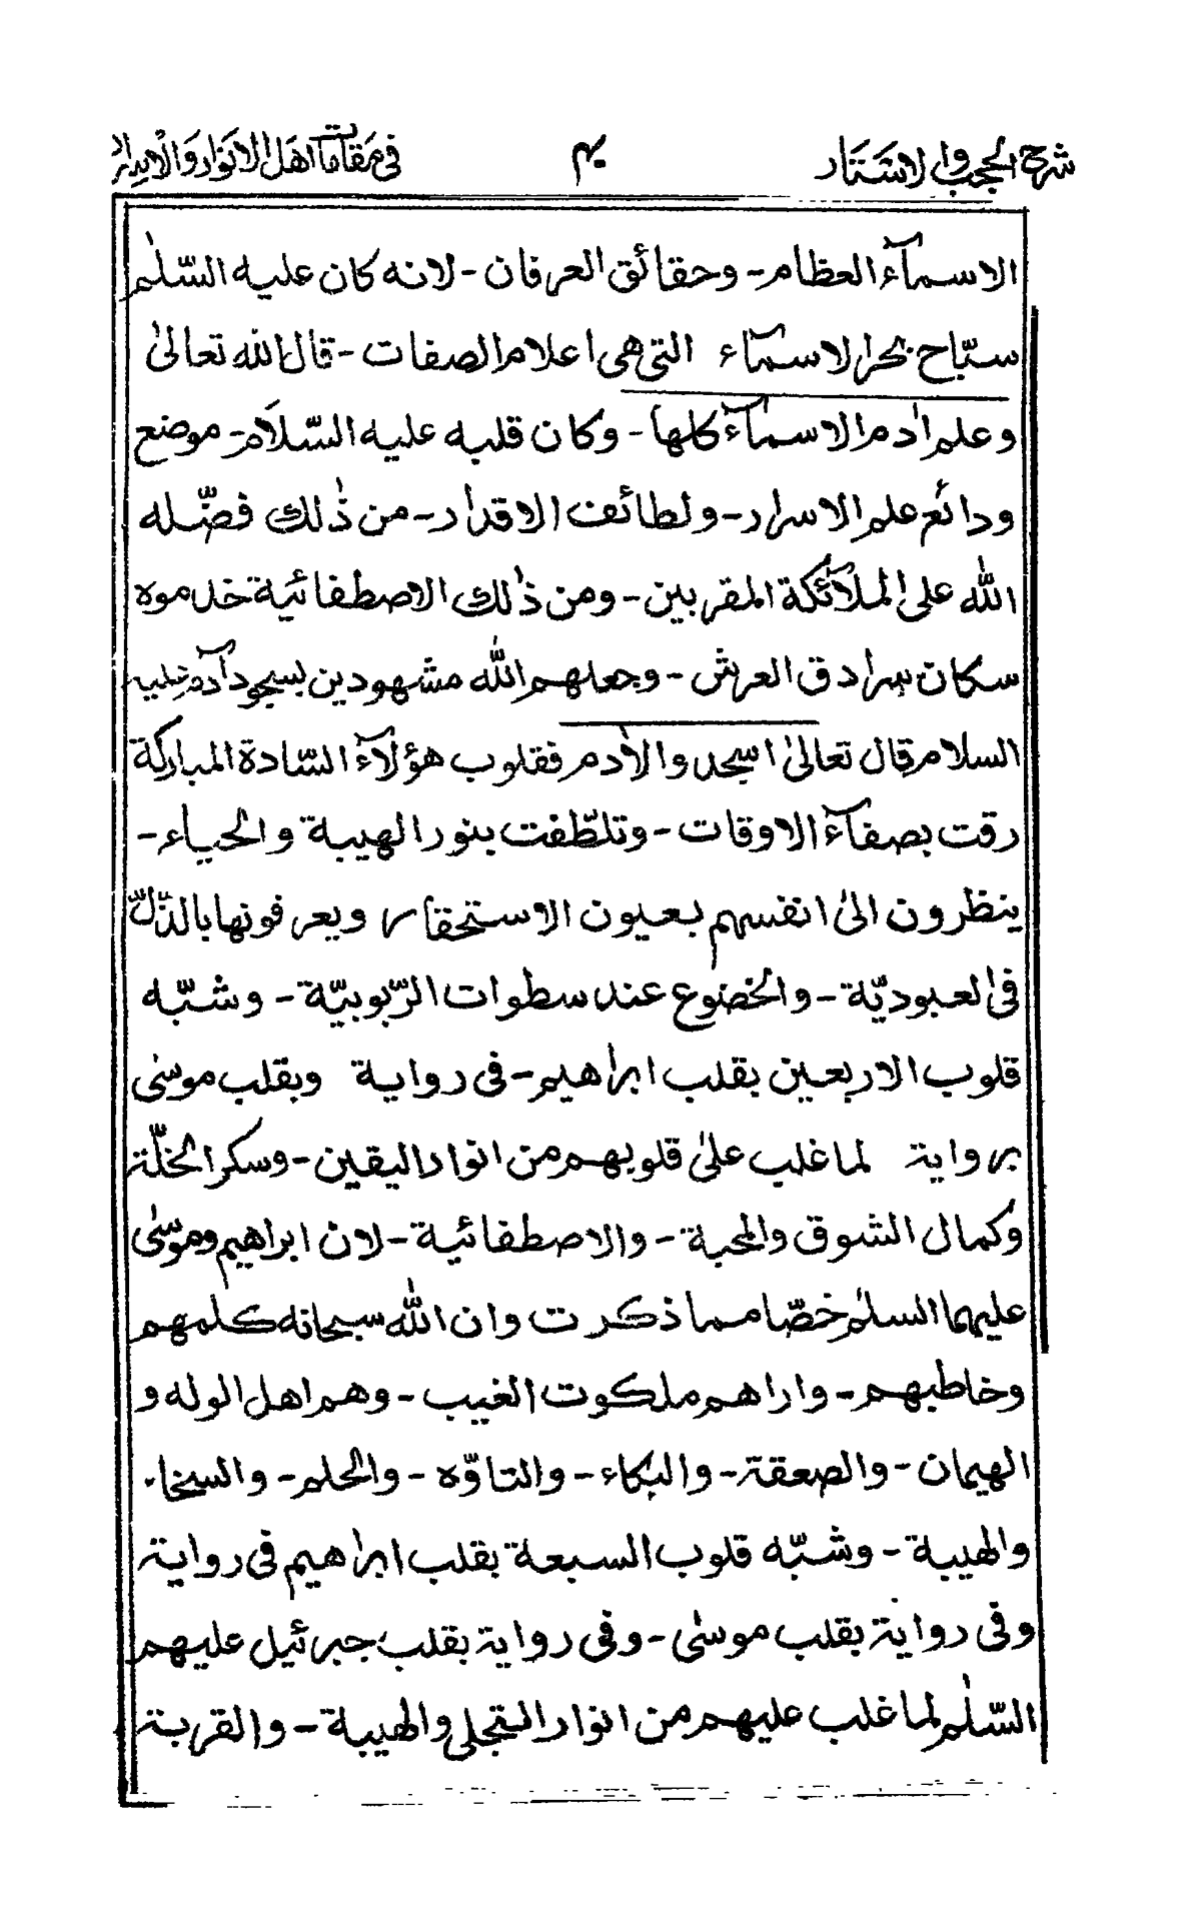 شرح الحجب والاستار ٤ في مقامات اهل الانوار والاسرار
الاسمآء العظام - وحقائق العرفان - لانه كان عليه السّلٰم
سبّاح بحر الاسمآء التي هي اعلام الصفات - قال الله تعالىٰ
وعلم اٰدم الاسمآء كلها - وكان قلبه عليه السّلام - موضع
ودائع علم الاسرار - ولطائف الاقدار - من ذٰلك فضّله
الله على الملآئكة المقربين - ومن ذٰلك الاصطفائية خدموه
سكان سرادق العرش - وجعلهم الله مشهودين بسجود آدم عليه
السلام قال تعالىٰ اسجدوا لاٰدم فقلوب هؤلآء السّادة المباركة
رقت بصفآء الاوقات - وتلطّفت بنور الهيبة والحياء -
ينظرون الىٰ انفسهم بعيون الاستحقار ويعرفونها بالذّلّ
في العبوديّة - والخضوع عند سطوات الرّبوبيّة - وشبّه
قلوب الاربعين بقلب ابراهيم - في رواية وبقلب موسٰى
برواية لما غلب علىٰ قلوبهم من انوار اليقين - وسكر الخلّة
وكمال الشوق والمحبة - والاصطفائية - لان ابراهيم وموسٰى
عليهما السلٰم خصّا مما ذكرت وان الله سبحانه كلمهم
وخاطبهم - واراهم ملكوت الغيب - وهم اهل الوله و
الهيمان - والصعقة - والبكاء - والتاوّه - والحلم - والسخاء
والهيبة - وشبّه قلوب السبعة بقلب ابراهيم في رواية
وفي رواية بقلب موسٰى - وفي رواية بقلب جبرئيل عليهم
السّلٰم لما غلب عليهم من انوار التجلي والهيبة - والقربة